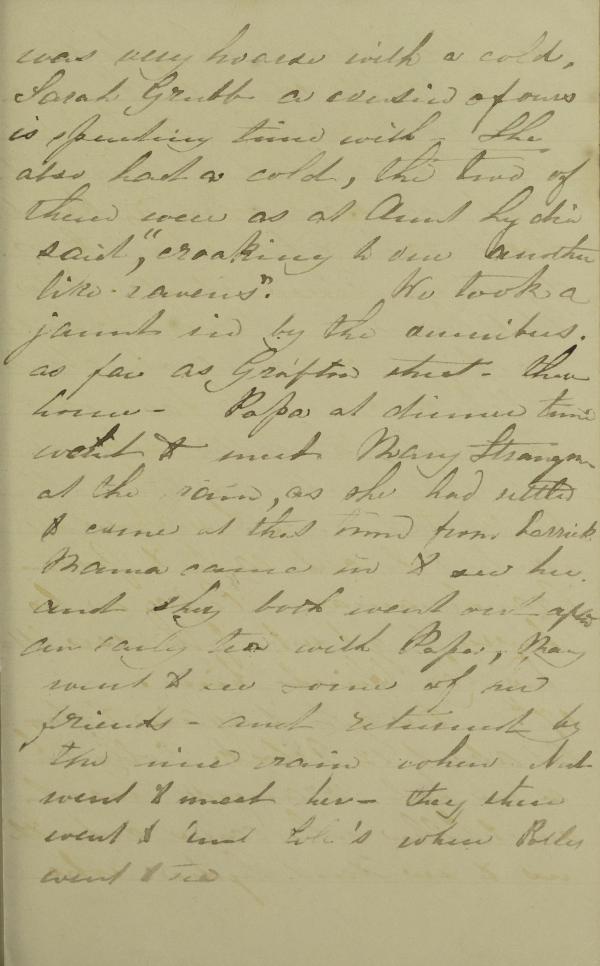 was very hoarse with a cold,
Sarah Grubb a cousin of ours
is spending time with - She
also had a cold, the two of
them were as at Aunt Lydia
said, "croaking to one another
like ravens". We took a
jaunt in by the omnibus.
as far as Grafton street - then
home - Papa at dinner time
went to meet Mary Strangman
at the train, as she had settled
to come at this time from
Mama came in to see her.
and they both went out after
an early tea with Papa, Mary
went to see some of her
friends - and returned by
the nine train when
went to meet her - they then
went to 's when Polly
went to tea